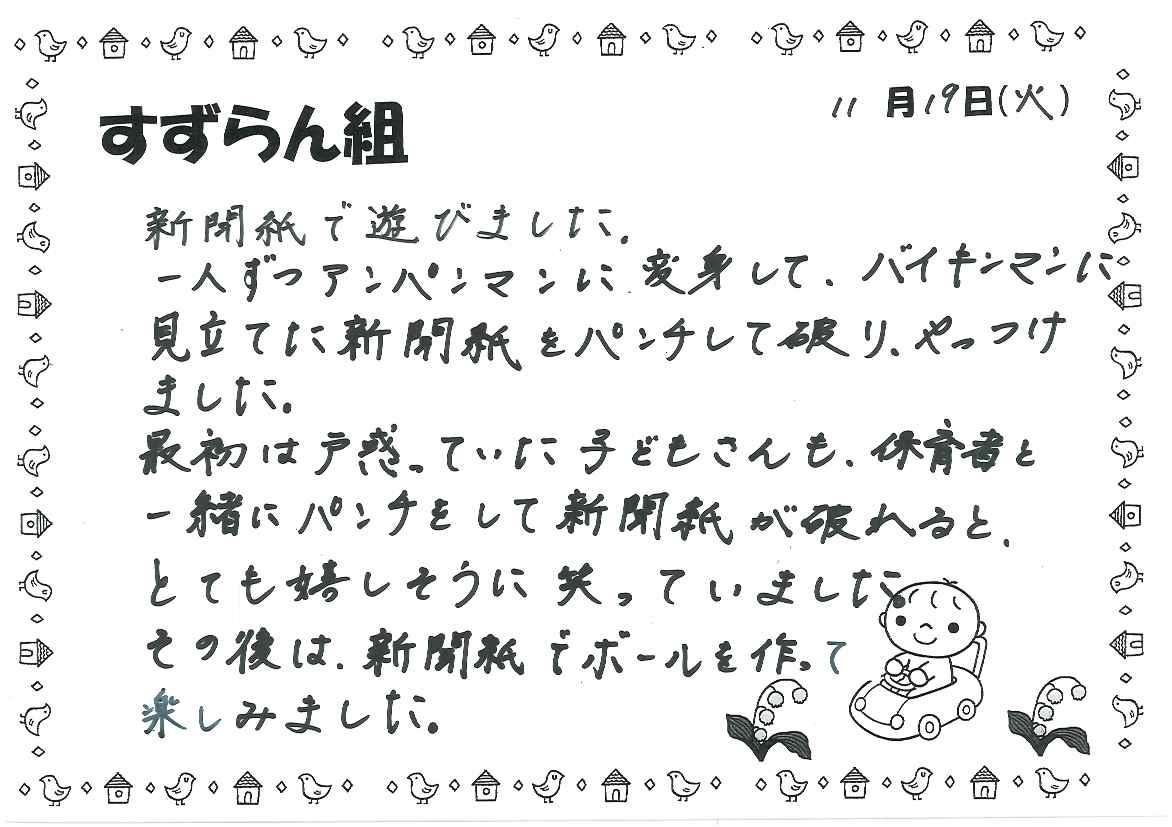 11月19日(火)
すずらん組
新聞紙で遊びました。
一人ずつアンパンマンに変身して、バイキンマンに
見立てた新聞紙をパンチして破り、やっつけ
ました。
最初は戸惑っていた子どもさんも、保育者と
一緒にパンチをして新聞紙が破れると、
とても嬉しそうに笑っていました。
その後は、新聞紙でボールを作って
楽しみました。